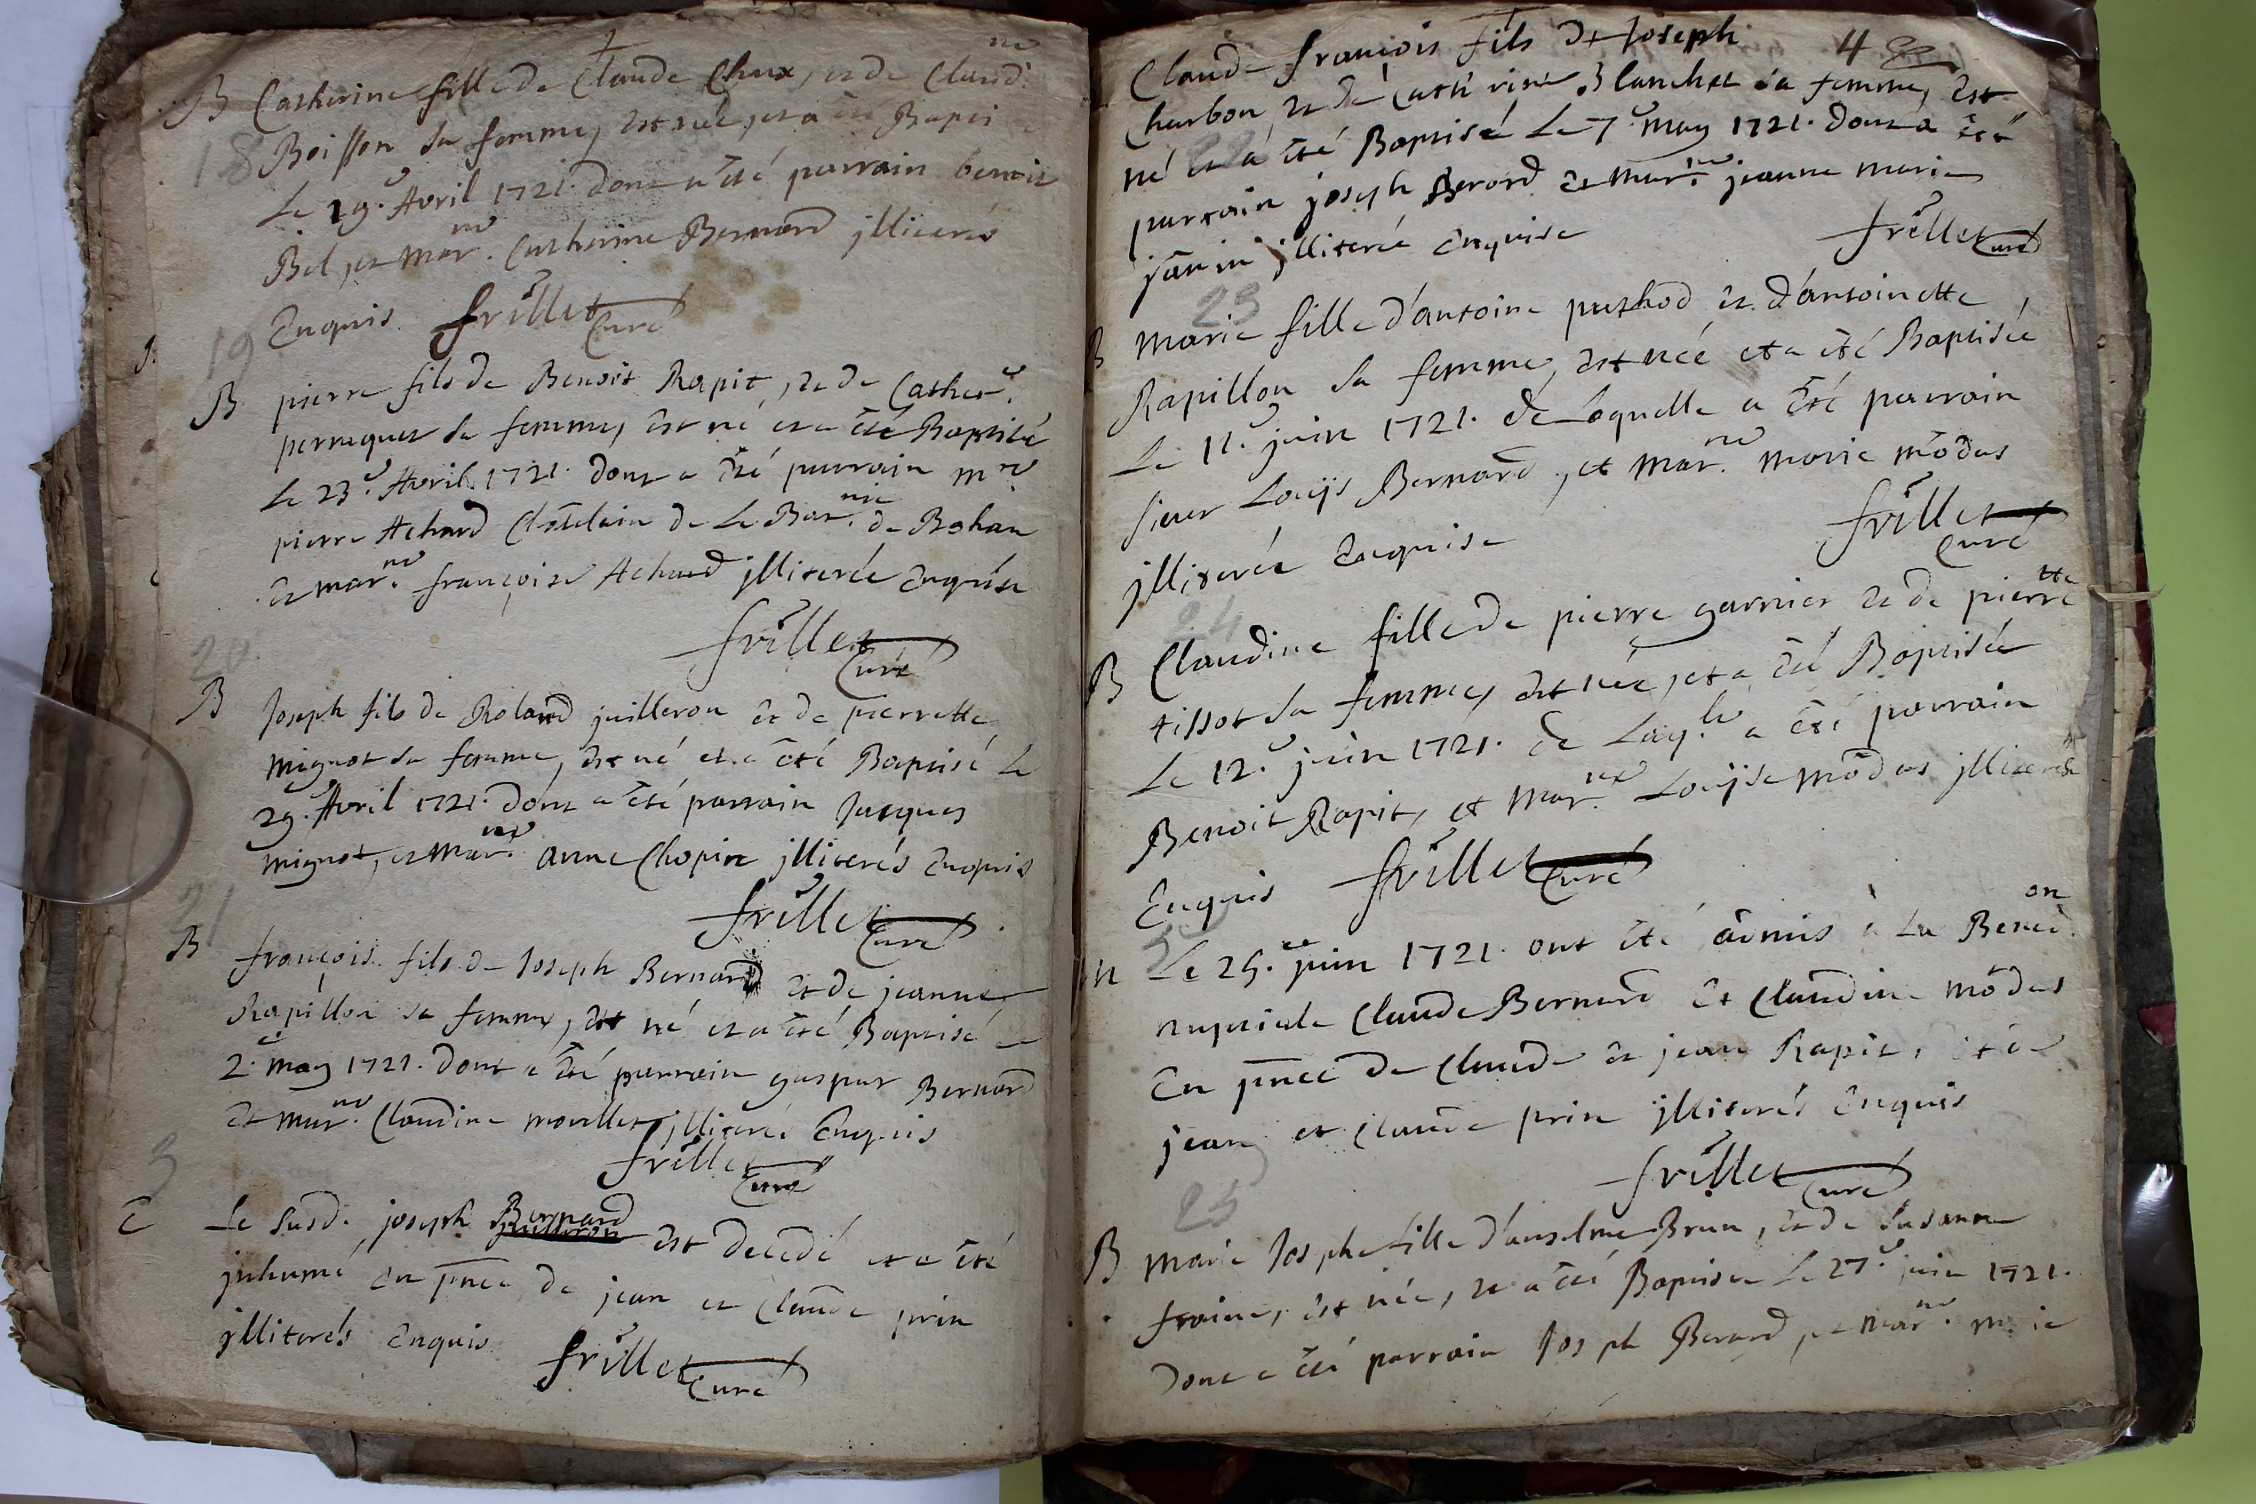 B Catherine fille de Claude Chnx, et de Claud.ne
18 Boisson sa femme, est née, et a été Bapti
Le 19.e Avril 1721. dont a été parrain benoit
Bel, et mar.ne Catherine Bernard jlliterés
Enquis. frillet Curé
19
B pierre fils de Benoit Rapit, et de Cather.e
perruquet sa femme, est né et a été Baptisé
Le 23.e Avril 1721. dont a été parrain m.re
pierre Achard Chãtelain de La Bar.nie de Bohan
et mar.ne françoise Achard jlliterée Enquise
frillet Curé
20
B Joseph fils de Roland juilleron et de pierrette
mignot sa femme, est né et a été Baptisé Le
29. Avril 1721. dont a été parrain Jacques
mignot, et mar.ne anne Chopin jlliterés Enquis
frillet Curé
21
B françois fils de Joseph Bernard et de jeanne
Rapillon sa femme, est né et a été Baptisé Le
2.e may 1721. dont a été parrain gaspar Bernard
et mar.ne Claudine moullet jlliterés Enquis
frillet Curé
3
E Le susd. joseph Bernard est decedé et a été
jnhumé En pñce de jean et Claude prin
jlliterés Enquis. frillet Curé
4
Claude françois fils de Joseph
Charbon, et de Catherine Blanchet sa femme, est
né et a été Baptisé Le 7.e may 1721. dont a été
parrain joseph Berard et mar.ne jeanne marie
janin jlliterée Enquise
frillet Curé
23
B marie fille d'antoine puthod et d'antoinette
Rapillon sa femme, est née et a été Baptisée
Le 11.e juin 1721. de Laquelle a été parrain
sieur Louÿs Bernard, et mar.ne marie mõdas
jlliterée Enquise
frillet Curé
24
B Claudine fille de pierre garnier et de pierrette
tissot sa femme, est née, et a été Baptisée
Le 12.e juin 1721. de Laq.le a été parrain
Benoit Rapit, et mar.ne Louÿse mõdas jlliterés
Enquis frillet Curé
3
M Le 25.e juin 1721. ont été admis à La Bened.on
nuptiale Claude Bernard et Claudine mõdas
En pñce de Claude et jean Rapit, et de
jean et Claude prin jlliterés Enquis
frillet Curé
25
B marie Josphe fille d'anselme Brun, et de Susanne
fraine, est née, et a été Baptisée Le 27.e juin 1721.
dont a été parrain Josph Berard, et mar.ne marie